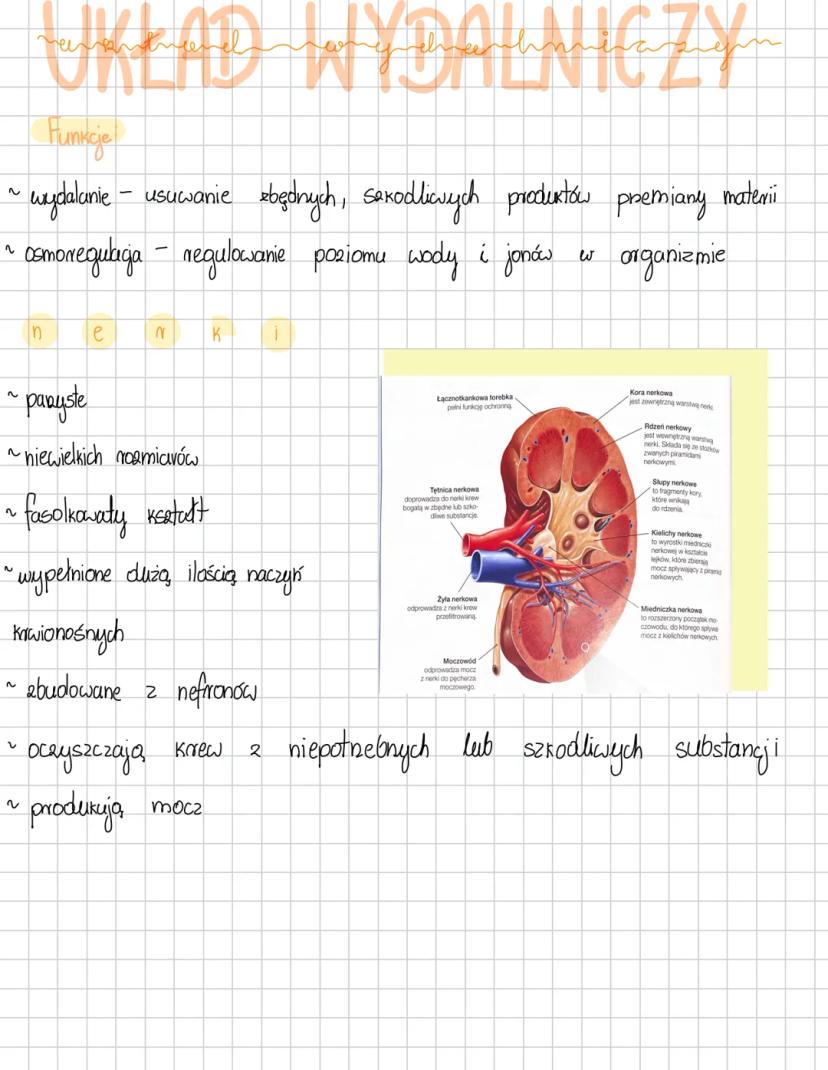 UKŁAD WYDALNICZY
układ wydalniczy
Funkcje
~ wydalanie – usuwanie zbędnych, szkodliwych produktów przemiany materii
~ osmoregulacja – regulowanie poziomu wody i jonów w organizmie
nerki
~ parzyste
~ niewielkich rozmiarów
~ fasolkowaty kształt
~ wypełnione dużą ilością naczyń
krwionośnych
~ zbudowane z nefronów
~ oczyszczają krew z niepotrzebnych lub szkodliwych substancji
~ produkują mocz
Łącznotkankowa torebka
pełni funkcję ochronną.
Tętnica nerkowa
doprowadza do nerki krew
bogatą w zbędne lub szko-
dliwe substancje.
Żyła nerkowa
odprowadza z nerki krew
przefiltrowaną.
Moczowód
odprowadza mocz
z nerki do pęcherza
moczowego.
Kora nerkowa
jest zewnętrzną warstwą nerki.
Rdzeń nerkowy
jest wewnętrzną warstwą
nerki. Składa się ze stożków
zwanych piramidami
nerkowymi.
Słupy nerkowe
to fragmenty kory,
które wnikają
do rdzenia.
Kielichy nerkowe
to wyrostki miedniczki
nerkowej w kształcie
lejków, które zbierają
mocz spływający z piramid
nerkowych.
Miedniczka nerkowa
to rozszerzony początek mo-
czowodu, do którego spływa
mocz z kielichów nerkowych.